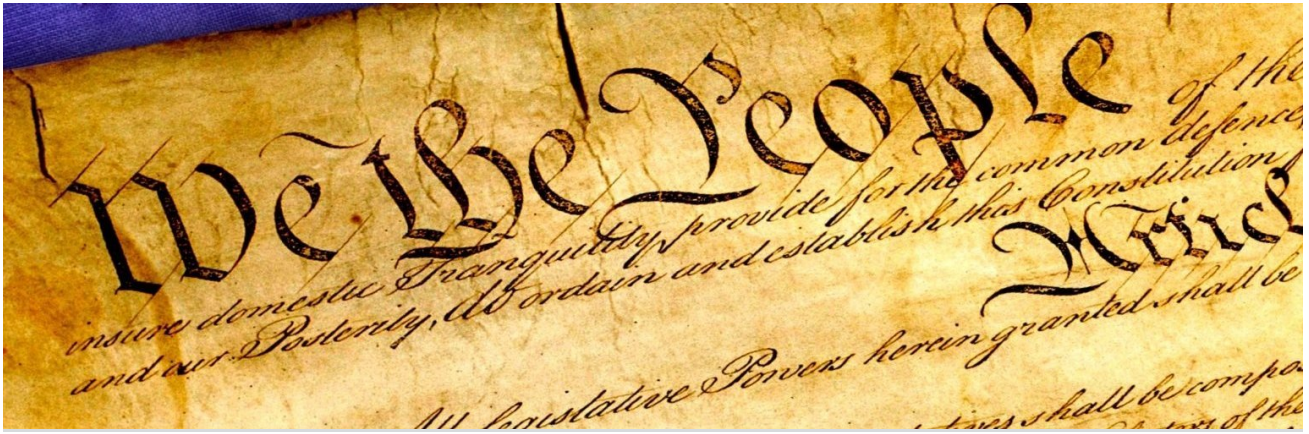 We the People of the
insure domestic Tranquility, provide for the common defence,
and our Posterity, do ordain and establish this Constitution
Articl
All legislative Powers herein granted shall be
shall be compos
of the